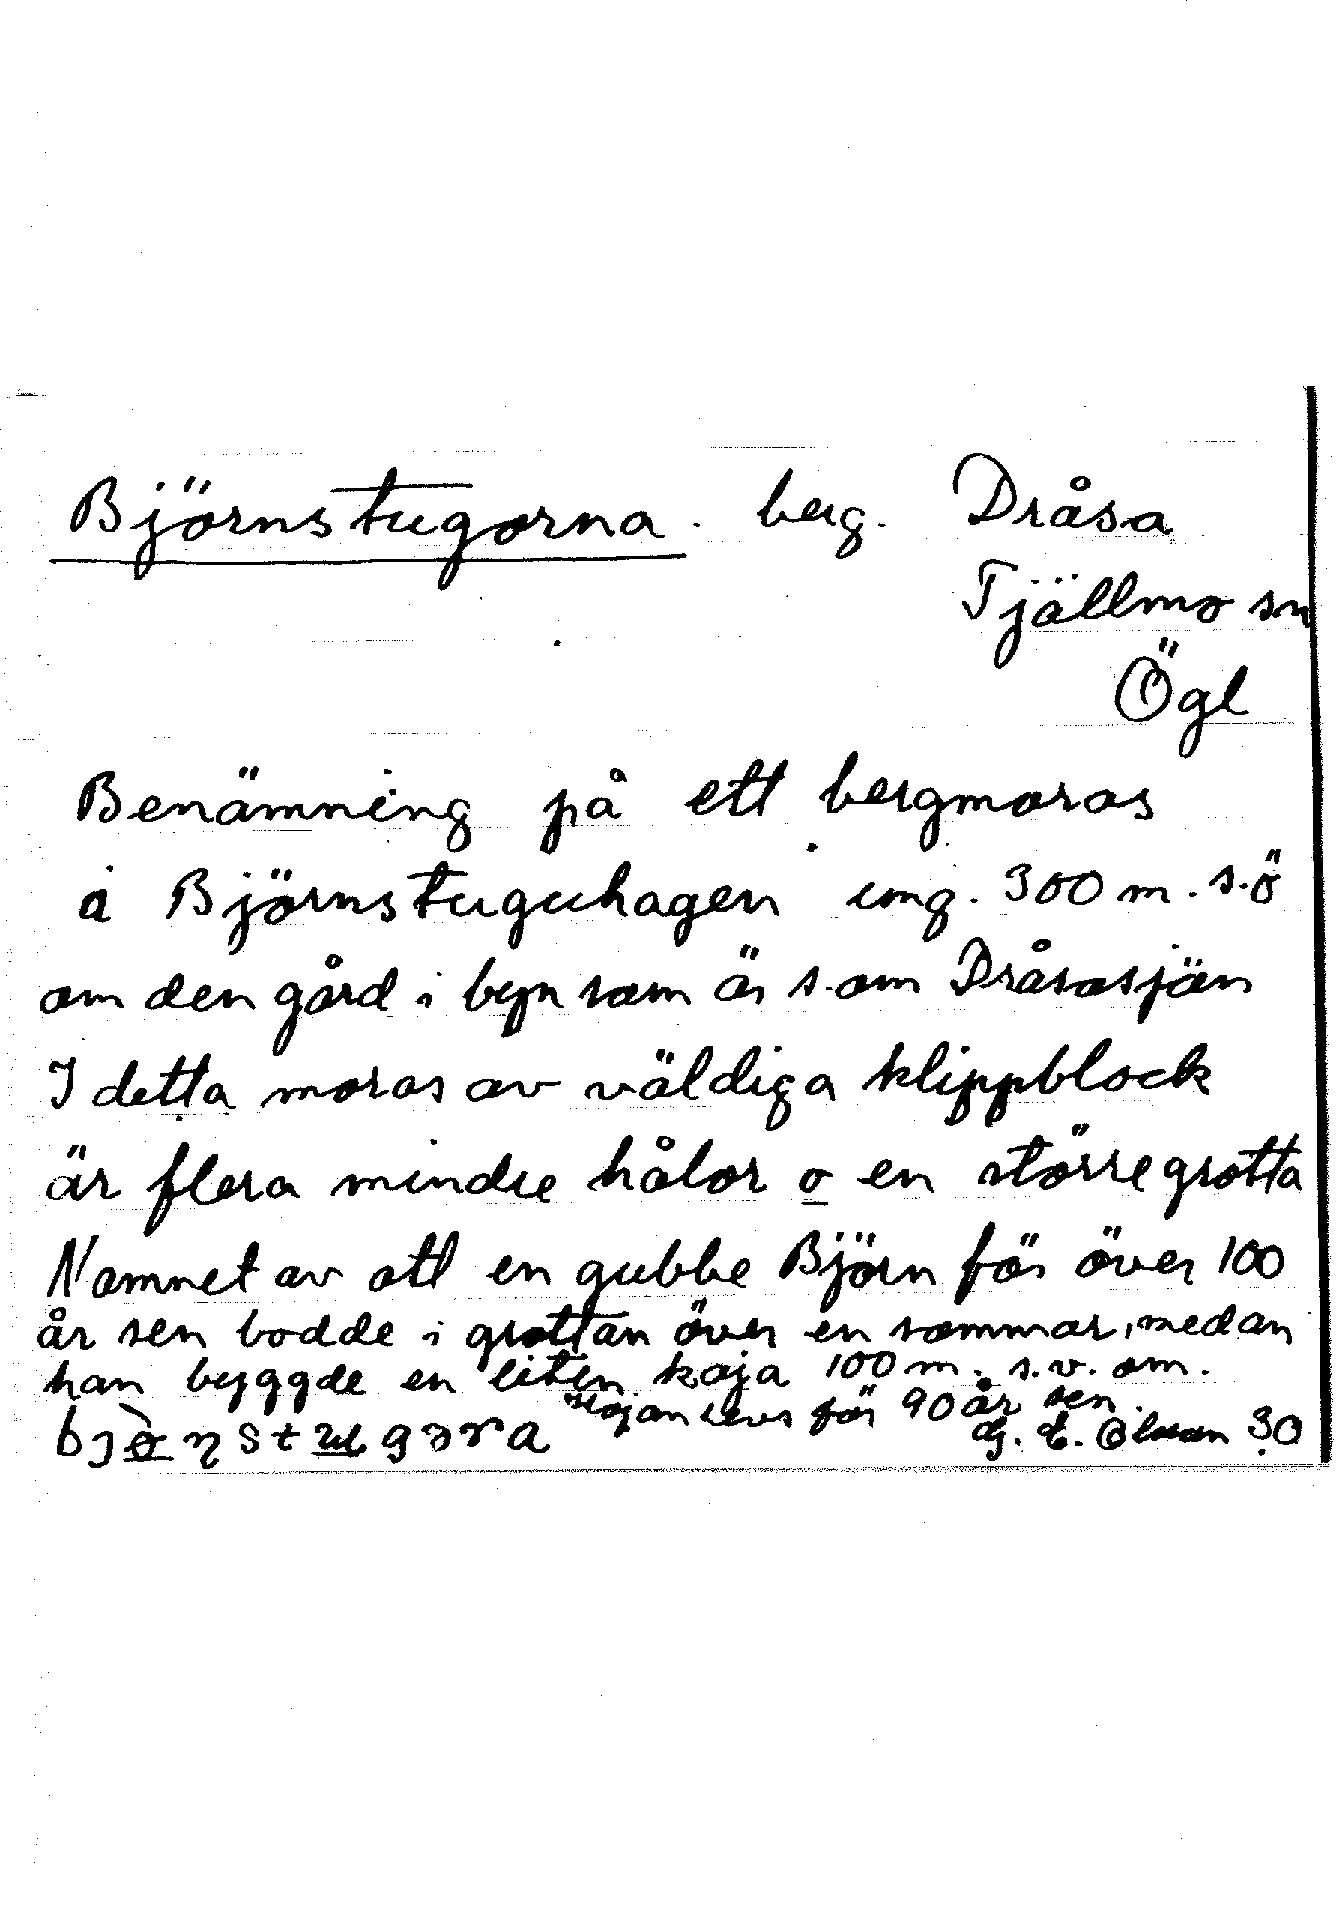 Björnstugorna. berg. Dråsa
Tjällmo sn
Ögl
Benämning på ett bergmoras
å Björnstuguhagen ung. 300 m. s.ö
om den gård i byn som är s. om Dråsasjön
I detta moras av väldiga klippblock
är flera mindre hålor o en större grotta
Namnet av att en gubbe Björn för över 100
år sen bodde i grottan över en sommar, medan
han byggde en liten koja 100 m. s.v. om.
Kojan revs för 90 år sen.
G. E. Olsson 30